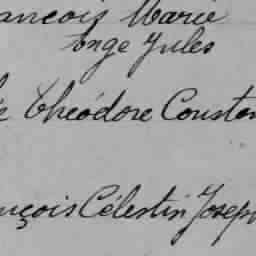 ançois Marie
Ange Jules
Théodore Constan
nçois Célestin Joseph